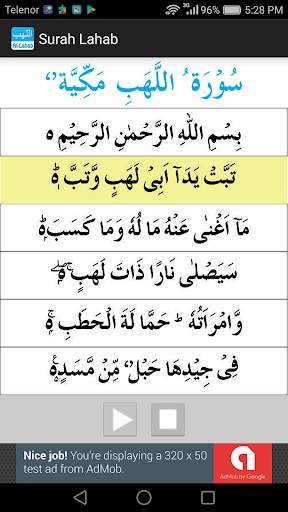 Telenor 79% 5:28 PM
اللهب
Al-Lahab
Surah Lahab
سُوْرَةُ اللَّهَبِ مَكِّيَّةٌ
بِسْمِ اللهِ الرَّحْمٰنِ الرَّحِيْمِ ۝
تَبَّتْ يَدَآ اَبِيْ لَهَبٍ وَّتَبَّ ۝ؕ
مَآ اَغْنٰى عَنْهُ مَا لُهٗ وَمَا كَسَبَ ۝ؕ
سَيَصْلٰى نَارًا ذَاتَ لَهَبٍ ۝ۚۖ
وَّامْرَاَتُهٗ ؕ حَمَّا لَةَ الْحَطَبِ ۝ۚ
فِيْ جِيْدِهَا حَبْلٌ مِّنْ مَّسَدٍ ۝
Nice job! You're displaying a 320 x 50
test ad from AdMob.
AdMob by Google